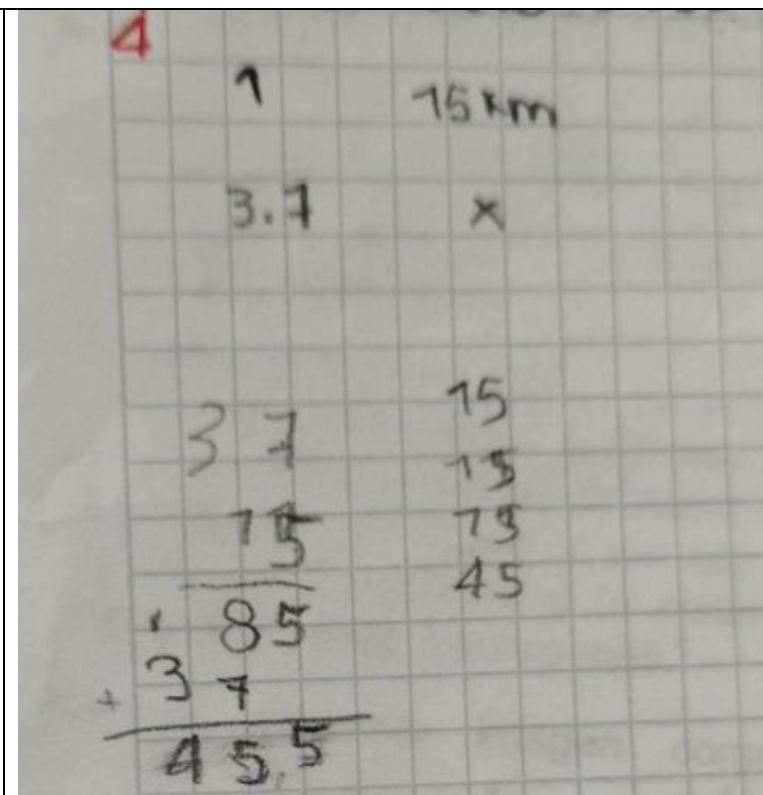 4
1 15 km
3.7 x
37
15
85
+ 37
45,5
15
15
15
45